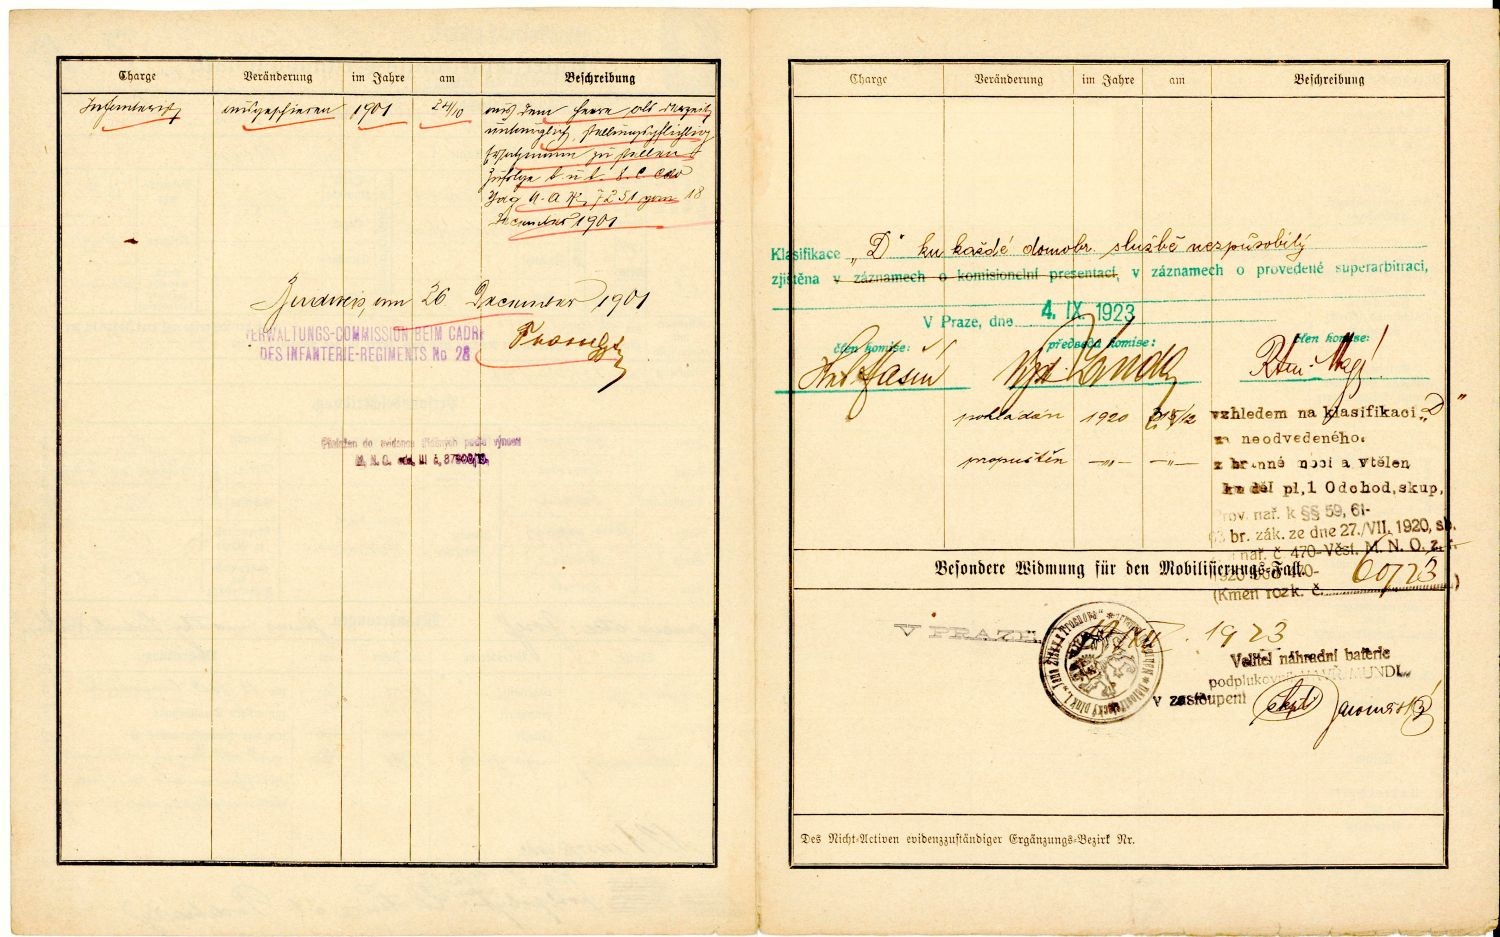 Charge Veränderung im Jahre am Beschreibung
Infanterist ausgeschieden 1901 24/10 aus dem Heere als derzeit
untauglich, stellungspflichtig
Ersatzmann zu stellen
Zufolge k. u. k. 8. C. Cdo
M. A. Nr 7251 vom 18
December 1901
Budweis, am 26 December 1901
VERWALTUNGS-COMMISSION BEIM CADRE
DES INFANTERIE-REGIMENTS No 28
Přeložen do evidence podle výnosu
M. N. O. odd. III č.
Charge Veränderung im Jahre am Beschreibung
Klasifikace „D“ ku každé domobr. službě nezpůsobilý
zjištěna v záznamech o komisionelní presentaci, v záznamech o provedené superarbitraci,
V Praze, dne 4. IX. 1923
člen komise: předseda komise: člen komise:
pohledán 1920 31/12 vzhledem na klasifikaci „D“
za neodvedeného.
propuštěn —„— —„— z branné moci a vtělen
ku děl pl, 1 Odchod, skup,
Prov. nař. k §§ 59, 61-
63 br. zák. ze dne 27./VII. 1920, sb.
nař. č 470-Věst. M. N. O. z. r.
1920
(Kmen rozk. č. 60/23)
Besondere Widmung für den Mobilisierungs-Fall.
V PRAZE 1923
Velitel náhradní baterie
podplukovník VAVŘ MUNDL
v zastoupení
Des Nicht-Activen evidenzzuständiger Ergänzungs-Bezirk Nr.